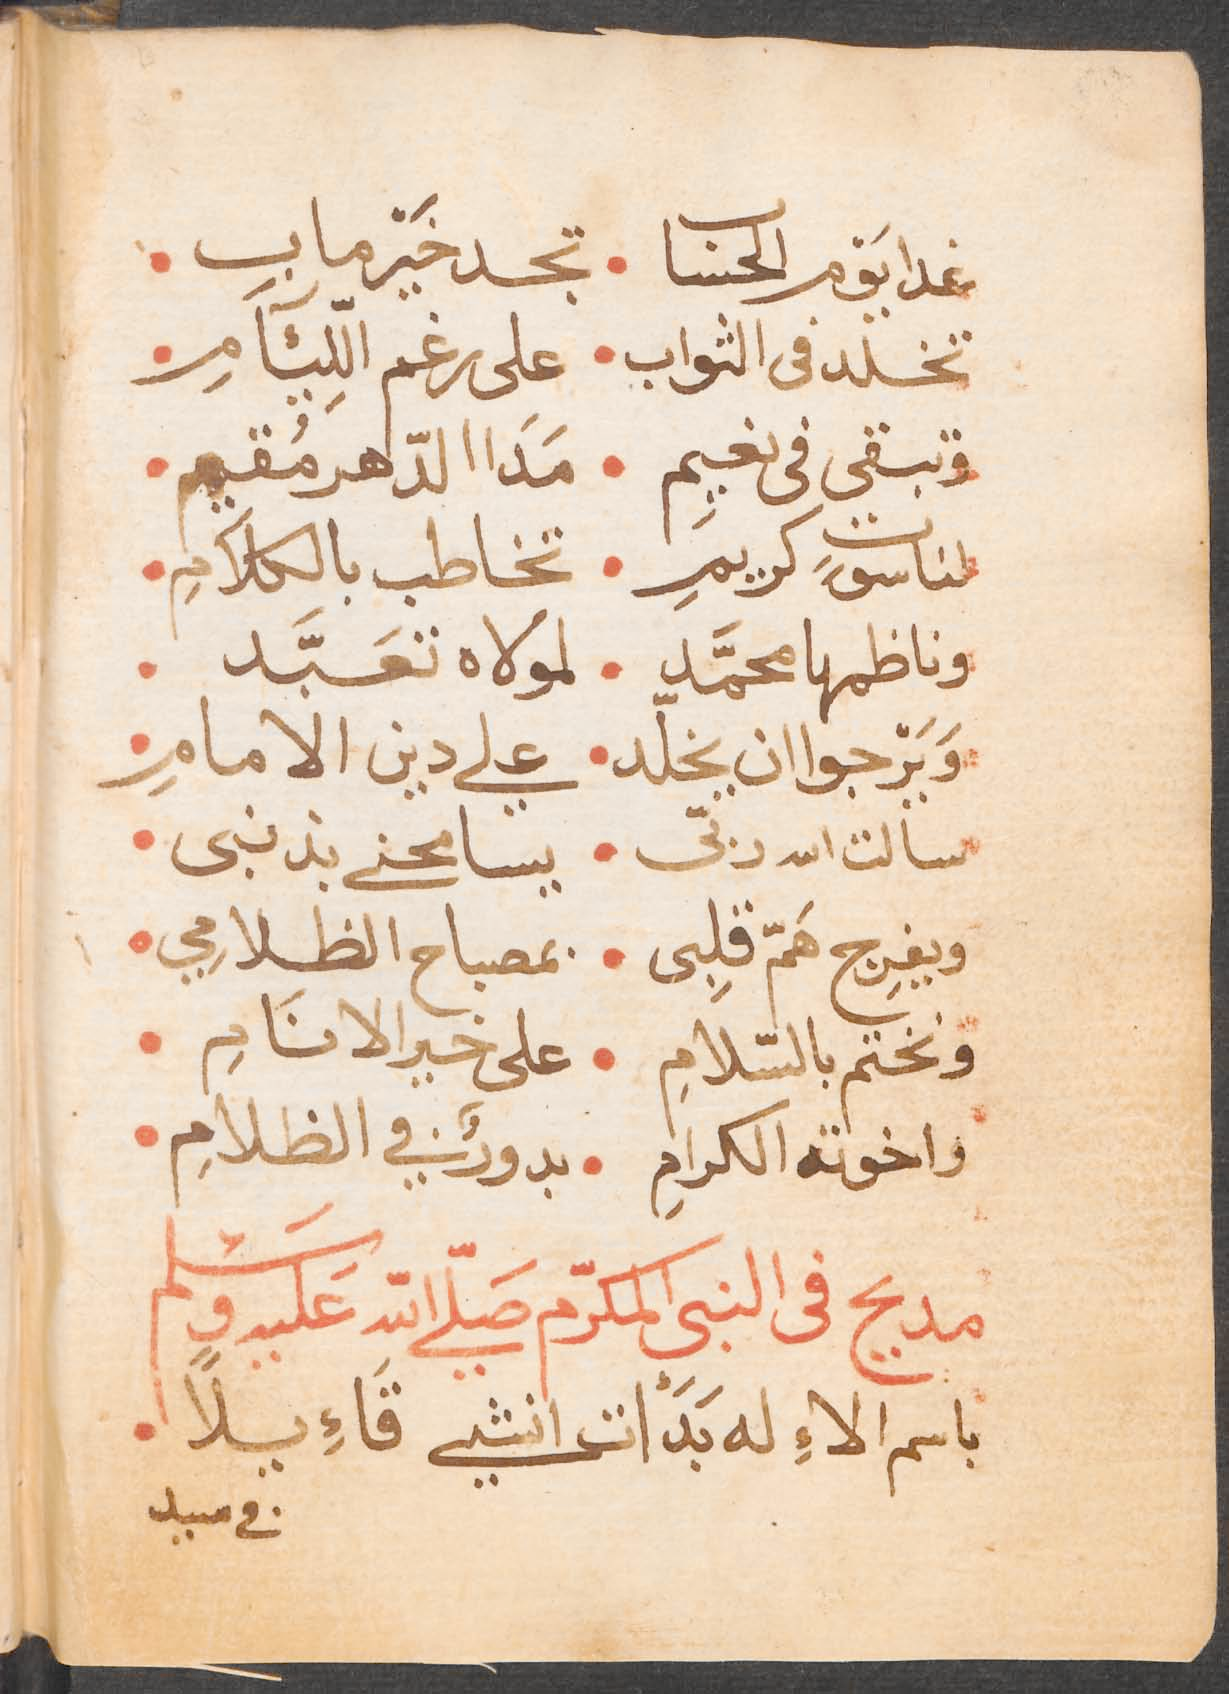 غدا يوم الحساب • تجد خَيْر مابِ •
تخلد فى الثواب • على رغم اللِّيَّامِ •
وتبقى فى نعيمِ • مَدَا الدّهر مُقيم •
لناسوتٍ كريمِ • تخاطب بالكلامِ •
وناظمها محمَّد • لمولاه تعَبَّد •
وَيَرْجوا ان يخلّد • على دين الامامِ •
سالت الله ربّى • يسامحنى بذنبى •
ويفرِج هَمّ قلِبى • بمصباح الظلامِي •
ونختم بالسّلامِ • على خير الانَامِ •
واخوته الكرامِ • بدورٌ في الظلامِ •
مديح فى النبى المكرّم صَلّى اللّه عَليه وسَلم
باسم الاءِله بَدَاْت انشي قَاءِيلاً •
في سيد